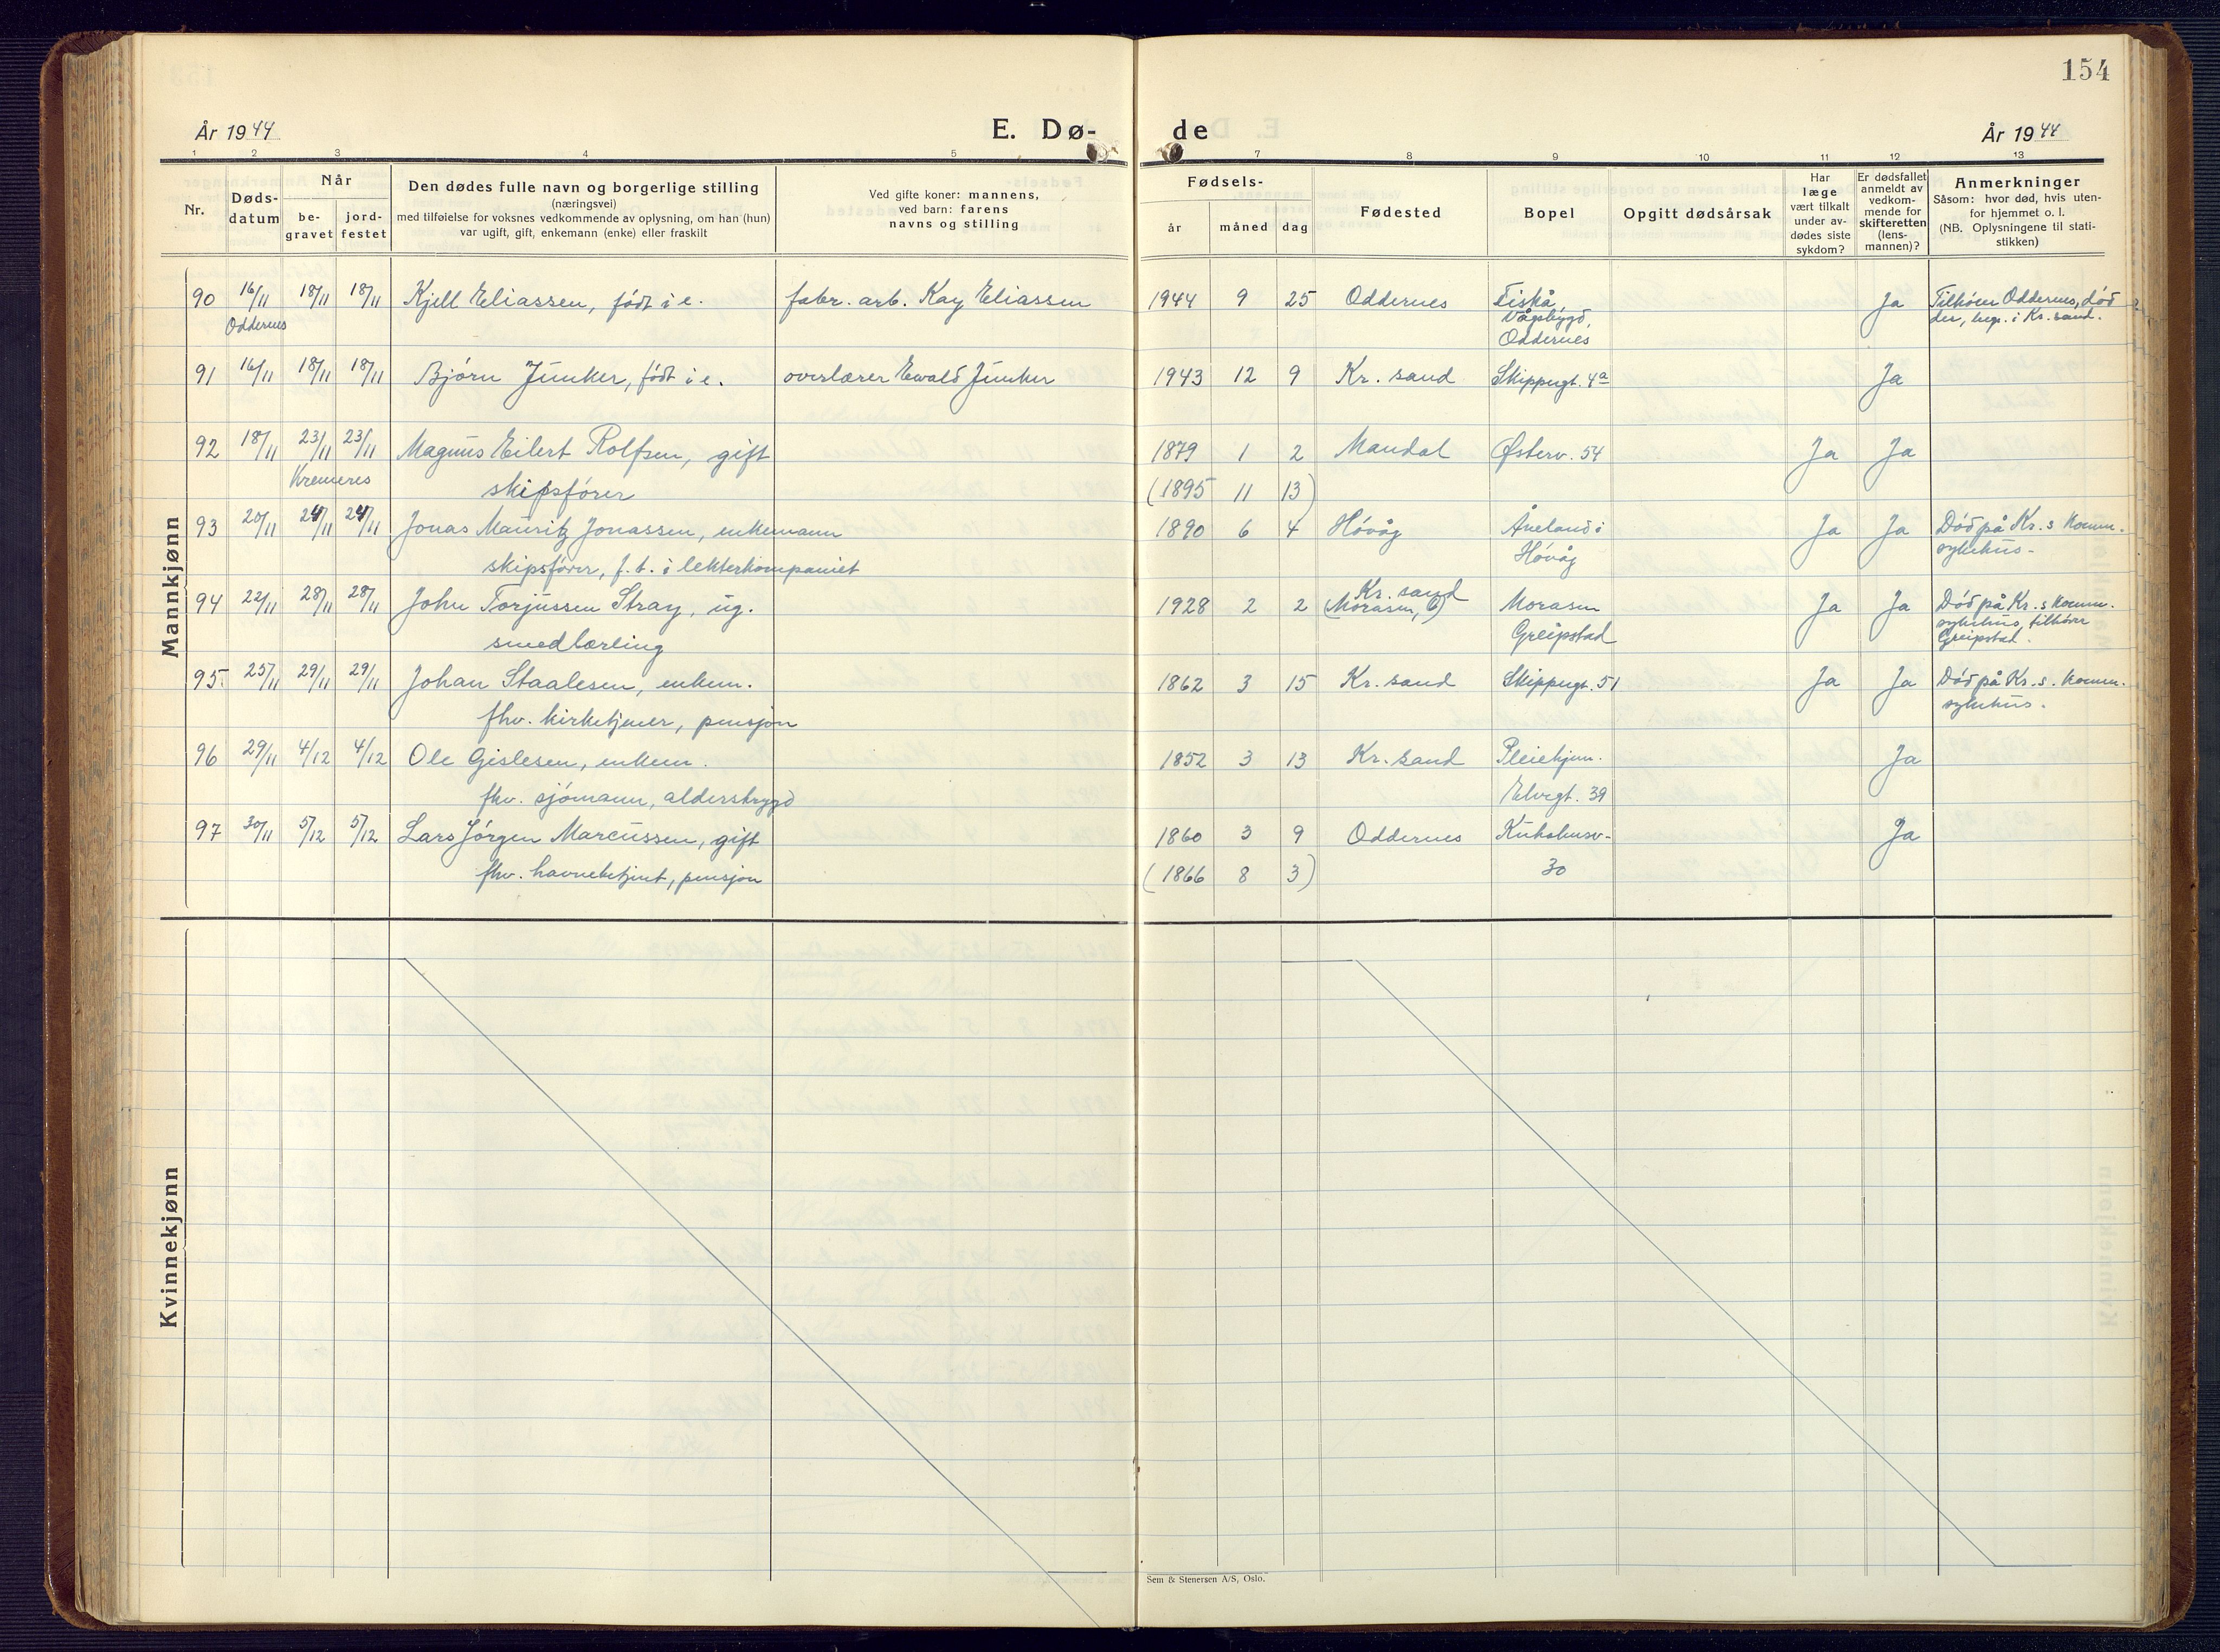 154
År 1944 E. Dø- de År 1944
1 2 3 4 5 7 8 9 10 11 12 13
Nr.
Døds-
datum
Når
be-
gravet
jord-
festet
Den dødes fulle navn og borgerlige stilling
(næringsvei)
med tilføielse for voksnes vedkommende av oplysning, om han (hun)
var ugift, gift, enkemann (enke) eller fraskilt
Ved gifte koner: mannens,
ved barn: farens
navns og stilling
Fødsels-
år måned dag
Fødested
Bopel
Opgitt dødsårsak
Har
læge
vært tilkalt
under av-
dødes siste
sykdom?
Er dødsfallet
anmeldt av
vedkom-
mende for
skifteretten
(lens-
mannen)?
Anmerkninger
Såsom: hvor død, hvis uten-
for hjemmet o. l.
(NB. Oplysningene til stati-
stikken)
Mannkjønn
90 16/11 18/11 18/11 Kjell Eliassen, født i e. fabr. arb. Kay Eliassen 1944 9 25 Oddernes Fiskå Ja Tilhører Oddernes, død
Oddernes Vågsbygd, der, begr. i Kr. sand.
Oddernes
91 16/11 18/11 18/11 Bjørn Junker, født i e. overlærer Ewald Junker 1943 12 9 Kr. sand Skippergt. 4a Ja
92 18/11 23/11 23/11 Magnus Eilert Rolfsen, gift 1879 1 2 Mandal Østerv. 54 Ja Ja
Kremeres skipsfører (1895 11 13)
93 20/11 24/11 24/11 Jonas Mauritz Jonassen, enkemann 1890 6 4 Høvåg Åneland i Ja Ja Død på Kr. s Komm.
skipsfører, f. t. i lekterkompaniet Høvåg sykehus.
94 22/11 28/11 28/11 John Torjussen Stray, ug. 1928 2 2 Kr. sand (Morasen, ) Morasen Ja Ja Død på Kr. s Komm.
smedlærling Greipstad sykehus, tilhører
Greipstad.
95 25/11 29/11 29/11 Johan Staalesen, enkem. 1862 3 15 Kr. sand Skippergt. 51 Ja Ja Død på Kr. s. Komm.
fhv. kirketjener, pensjon sykehus.
96 29/11 4/12 4/12 Ole Gislesen, enkem. 1852 3 13 Kr. sand Pleiehjem. Ja
fhv. sjømann, alderstrygd Elvegt. 39
97 30/11 5/12 5/12 Lars Jørgen Marcussen, gift 1860 3 9 Oddernes Kuholmsv. Ja
fhv. havnebetjent, pensjon (1866 8 3) 30
Kvinnekjønn
Sem & Stenersen A/S, Oslo.